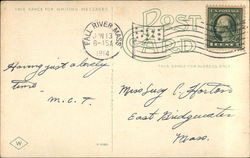 THIS SPACE FOR WRITING MESSAGES
POST CARD
FALL RIVER, MASS
JUN 13
8-15A
1914
THIS SPACE FOR ADDRESS ONLY
Having just a lovely
time
M.C.T.
Miss Lucy C. Horton
East Bridgewater
Mass.